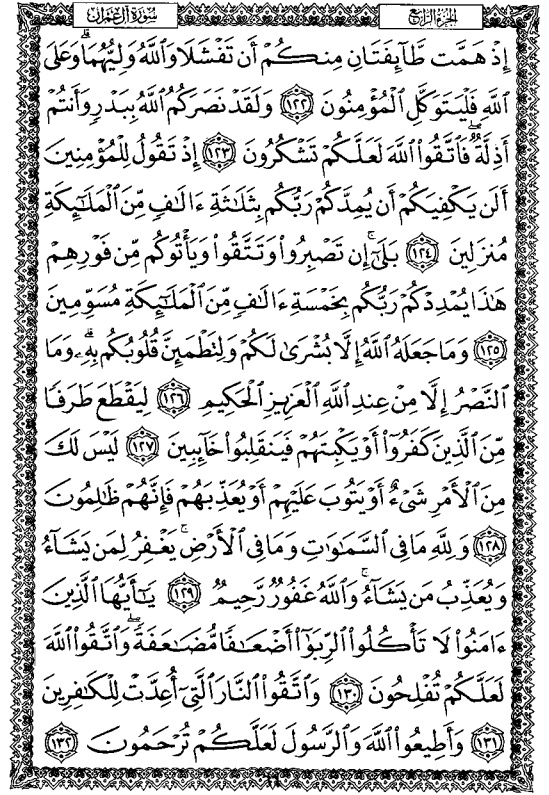 سُورَةُ آلِ عِمْرَان
الجُزْءُ الرَّابِعُ
إِذْ هَمَّت طَّآئِفَتَانِ مِنكُمْ أَن تَفْشَلَا وَٱللَّهُ وَلِيُّهُمَا ۗ وَعَلَى
ٱللَّهِ فَلْيَتَوَكَّلِ ٱلْمُؤْمِنُونَ ١٢٢ وَلَقَدْ نَصَرَكُمُ ٱللَّهُ بِبَدْرٍ وَأَنتُمْ
أَذِلَّةٌ ۖ فَٱتَّقُوا۟ ٱللَّهَ لَعَلَّكُمْ تَشْكُرُونَ ١٢٣ إِذْ تَقُولُ لِلْمُؤْمِنِينَ
أَلَن يَكْفِيَكُمْ أَن يُمِدَّكُمْ رَبُّكُم بِثَلَٰثَةِ ءَالَٰفٍ مِّنَ ٱلْمَلَٰٓئِكَةِ
مُنزَلِينَ ١٢٤ بَلَىٰٓ ۚ إِن تَصْبِرُوا۟ وَتَتَّقُوا۟ وَيَأْتُوكُم مِّن فَوْرِهِمْ
هَٰذَا يُمْدِدْكُمْ رَبُّكُم بِخَمْسَةِ ءَالَٰفٍ مِّنَ ٱلْمَلَٰٓئِكَةِ مُسَوِّمِينَ
١٢٥ وَمَا جَعَلَهُ ٱللَّهُ إِلَّا بُشْرَىٰ لَكُمْ وَلِتَطْمَئِنَّ قُلُوبُكُم بِهِۦ ۗ وَمَا
ٱلنَّصْرُ إِلَّا مِنْ عِندِ ٱللَّهِ ٱلْعَزِيزِ ٱلْحَكِيمِ ١٢٦ لِيَقْطَعَ طَرَفًا
مِّنَ ٱلَّذِينَ كَفَرُوٓا۟ أَوْ يَكْبِتَهُمْ فَيَنقَلِبُوا۟ خَآئِبِينَ ١٢٧ لَيْسَ لَكَ
مِنَ ٱلْأَمْرِ شَىْءٌ أَوْ يَتُوبَ عَلَيْهِمْ أَوْ يُعَذِّبَهُمْ فَإِنَّهُمْ ظَٰلِمُونَ
١٢٨ وَلِلَّهِ مَا فِى ٱلسَّمَٰوَٰتِ وَمَا فِى ٱلْأَرْضِ ۚ يَغْفِرُ لِمَن يَشَآءُ
وَيُعَذِّبُ مَن يَشَآءُ ۚ وَٱللَّهُ غَفُورٌ رَّحِيمٌ ١٢٩ يَٰٓأَيُّهَا ٱلَّذِينَ
ءَامَنُوا۟ لَا تَأْكُلُوا۟ ٱلرِّبَوٰٓا۟ أَضْعَٰفًا مُّضَٰعَفَةً ۖ وَٱتَّقُوا۟ ٱللَّهَ
لَعَلَّكُمْ تُفْلِحُونَ ١٣٠ وَٱتَّقُوا۟ ٱلنَّارَ ٱلَّتِىٓ أُعِدَّتْ لِلْكَٰفِرِينَ
١٣١ وَأَطِيعُوا۟ ٱللَّهَ وَٱلرَّسُولَ لَعَلَّكُمْ تُرْحَمُونَ ١٣٢